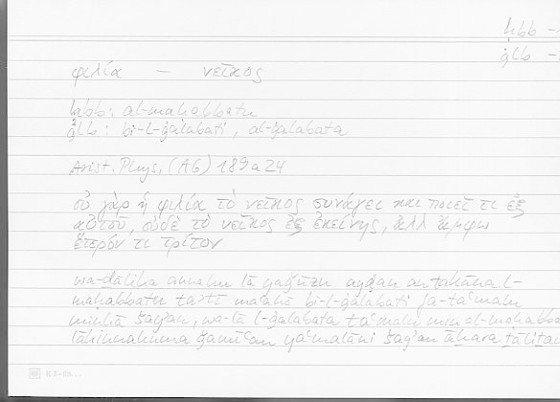 ḥbb –
ġlb –
φιλία — νεῖκος
ḥbb: al-maḥabbatu
ġlb: bi-l-ġalabati, al-ġalabata
Arist. Phys. (AG) 189a24
οὐ γὰρ ἡ φιλία τὸ νεῖκος συνάγει καὶ ποιεῖ τι ἐξ
αὐτοῦ, οὐδὲ τὸ νεῖκος ἐξ ἐκείνης, ἀλλ' ἄμφω
ἕτερόν τι τρίτον
wa-ḏālika annahu lā yaǧūzu ayḍan an takūna l-
maḥabbatu bi-l-ġalabati fa-taʿmalu
minhā šayʾan, wa-lā l-ġalabata taʿmalu min al-maḥabba
lākinnahumā ǧamīʿan yaʿmalāni šayʾan āḫara ṯāliṯan